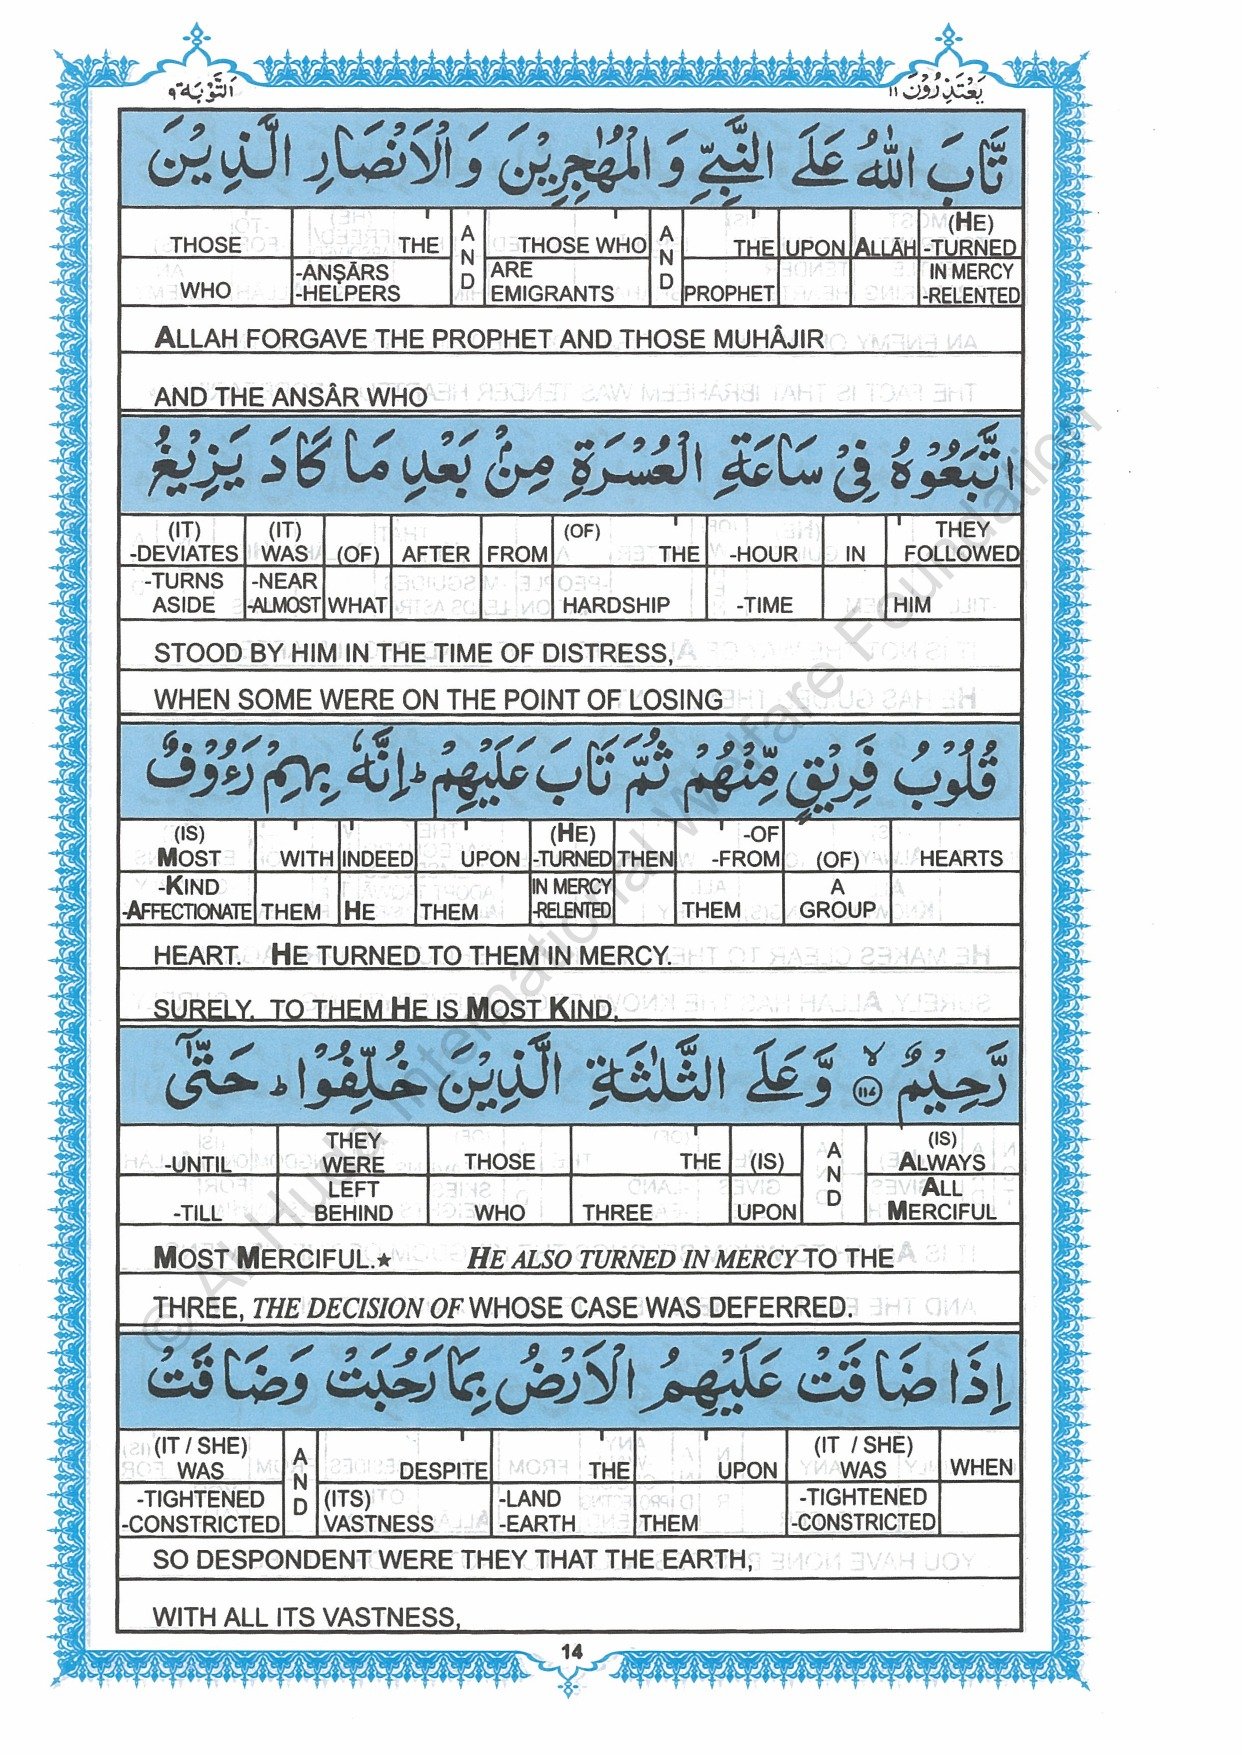 يَعْتَذِرُوْنَ ١١
اَلتَّوْبَة ٩
تَّابَ اللّٰهُ عَلَى النَّبِيِّ وَ الْمُهٰجِرِيْنَ وَ الْاَنْصَارِ الَّذِيْنَ
THOSE THE AND THOSE WHO AND THE UPON ALLĀH (HE) -TURNED
WHO -ANṢĀRS -HELPERS ARE EMIGRANTS PROPHET IN MERCY -RELENTED
ALLAH FORGAVE THE PROPHET AND THOSE MUHÂJIR
AND THE ANSÂR WHO
اتَّبَعُوْهُ فِيْ سَاعَةِ الْعُسْرَةِ مِنْۢ بَعْدِ مَا كَادَ يَزِيْغُ
(IT) -DEVIATES (IT) WAS (OF) AFTER FROM (OF) THE -HOUR IN THEY FOLLOWED
-TURNS ASIDE -NEAR -ALMOST WHAT HARDSHIP -TIME HIM
STOOD BY HIM IN THE TIME OF DISTRESS,
WHEN SOME WERE ON THE POINT OF LOSING
قُلُوْبُ فَرِيْقٍ مِّنْهُمْ ثُمَّ تَابَ عَلَيْهِمْ ؕ اِنَّهٗ بِهِمْ رَءُوْفٌ
(IS) MOST WITH INDEED UPON (HE) -TURNED THEN -OF -FROM (OF) HEARTS
-KIND -AFFECTIONATE THEM HE THEM IN MERCY -RELENTED THEM A GROUP
HEART. HE TURNED TO THEM IN MERCY.
SURELY. TO THEM HE IS MOST KIND,
رَّحِيْمٌ ۙ ﴿١١٧﴾ وَّ عَلَى الثَّلٰثَةِ الَّذِيْنَ خُلِّفُوْا ؕ حَتّٰٓى
-UNTIL THEY WERE THOSE THE (IS) AND (IS) ALWAYS
-TILL LEFT BEHIND WHO THREE UPON ALL MERCIFUL
MOST MERCIFUL.★ HE ALSO TURNED IN MERCY TO THE
THREE, THE DECISION OF WHOSE CASE WAS DEFERRED.
اِذَا ضَاقَتْ عَلَيْهِمُ الْاَرْضُ بِمَا رَحُبَتْ وَ ضَاقَتْ
(IT / SHE) WAS AND DESPITE THE UPON (IT / SHE) WAS WHEN
-TIGHTENED -CONSTRICTED (ITS) VASTNESS -LAND -EARTH THEM -TIGHTENED -CONSTRICTED
SO DESPONDENT WERE THEY THAT THE EARTH,
WITH ALL ITS VASTNESS,
14
© Al-Huda International Welfare Foundation